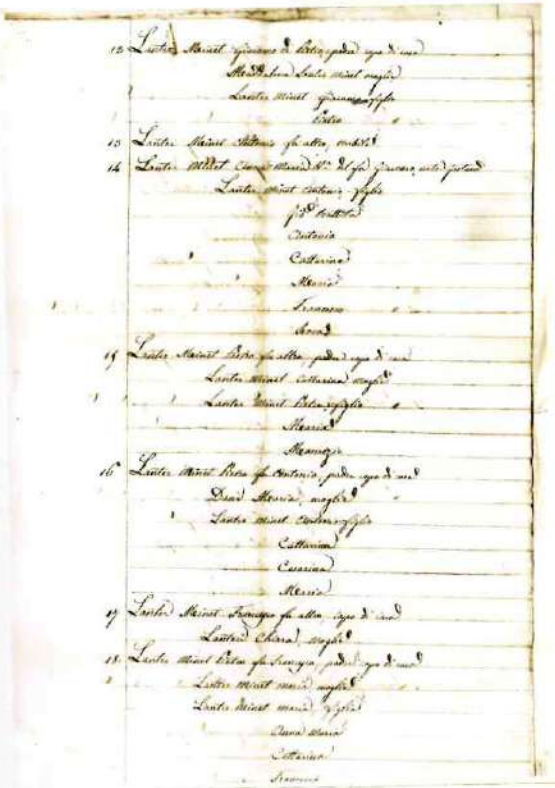 12 Lantre Mainet Giacomo di Pietro, padre capo di casa
Maddalena Lantre Minet moglie
Lantre Minet Giacomo figlio
Pietro "
13 Lantre Mainet Antonio fu altro, nubile
14 Lantre Minet Maria del fu Giacomo
Lantre Minet Antonio, figlio
Battista
Antonia
Cattarina
Maria
Francesco "
15 Lantre Mainet Pietro fu altro, padre capo di casa
Lantre Minet Cattarina moglie
Lantre Minet Pietro, figlio "
Maria
Maurizio
16 Lantre Minet Pietro fu Antonio, padre capo di casa
Maria, moglie "
Lantre Minet figlio
Cattarina
Cesarina
Maria
17 Lantre Mainet Francesco fu altro, capo di casa
Lantre Chiara, moglie
18 Lantre Minet Pietro fu Francesco, padre capo di casa
Lantre Minet Maria moglie
Lantre Minet Maria, figlia
Anna Maria
Cattarina